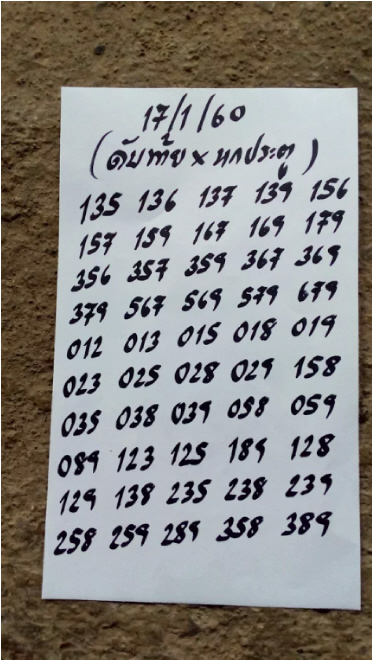 17/1/60
(ดับท้าย x หกประตู)
135 136 137 139 156
157 159 167 169 179
356 357 359 367 369
379 567 569 579 679
012 013 015 018 019
023 025 028 029 158
035 038 039 058 059
089 123 125 189 128
129 138 235 238 239
258 259 289 358 389